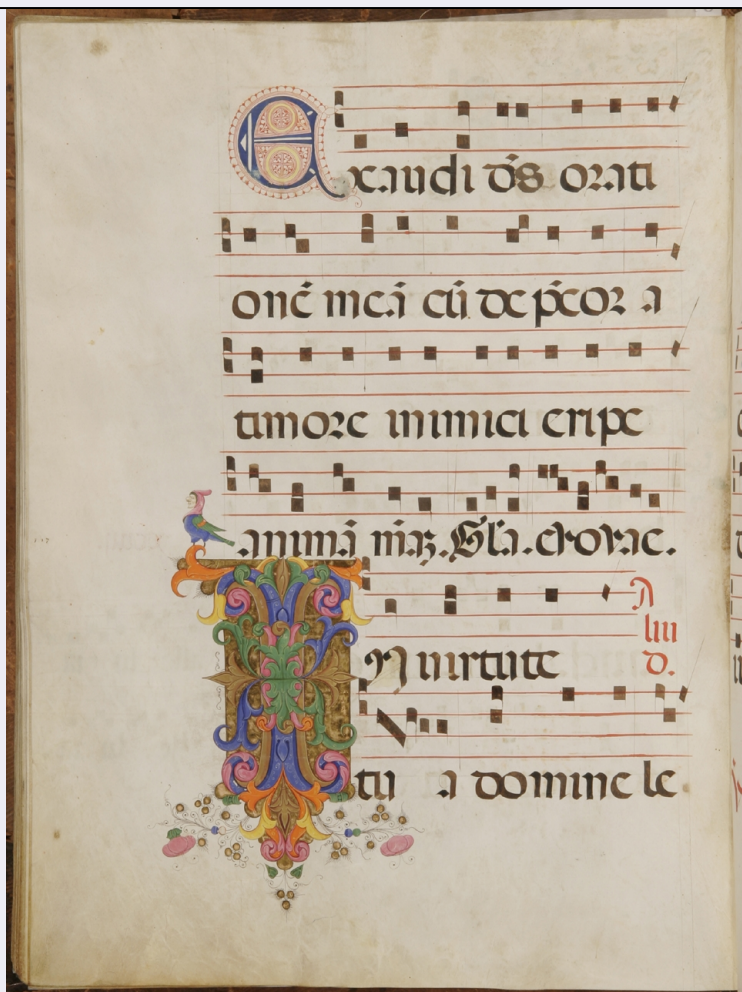 Exaudi ds̄ orati
onē meā cū dep̄cor a
timore inimici eripe
animā mēaʒ. Gl̄a. evovae.
IN virtute
A
liu
D.
tu a domine le